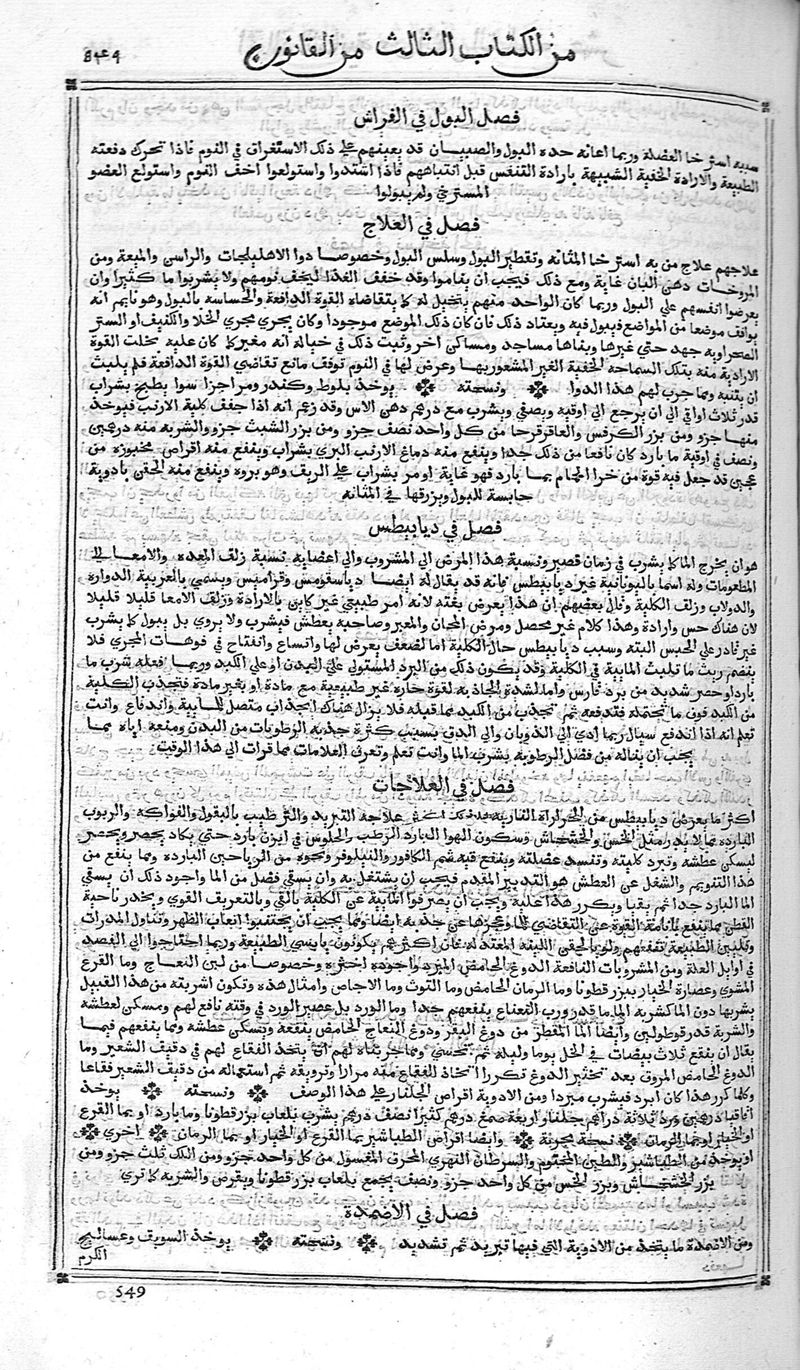 من الكتاب الثالث من القانون
٥٤٩
فصل البول في الفراش
سببه استرخا العضلة وربما اعانه حده البول والصبيان قد يعينهم علي ذلك الاستغراق في النوم فاذا تحرك دفعته
الطبيعة والارادة الخفية الشبيهة بارادة التنفس قبل انتباههم فاذا اشتدوا واستولعوا اخف النوم واستولع العضو
المسترخي ولم يبولوا
فصل في العلاج
علاجهم علاج من به استرخا المثانه وتقطير البول وسلس البول وخصوصا دوا الاهليلجات والراسن والميعة ومن
المروخات دهن البان غاية ومع ذلك فيجب ان يناموا وقد خفف الغذا ليخف نومهم ولا يشربوا ما كثيرا وان
يعرضوا انفسهم علي البول وربما كان الواحد منهم يتخيل له كما يتقاضاه القوة الدافعة والحساسه بالبول وهو نايم انه
يوافي موضعا من المواضع فيبول فيه ويعتاد ذلك فان كان ذلك الموضع موجودا وكان يجري مجري الخلا والكنيف او الستر
الصحراويه جهد حتي غيرها وبناها مساجد ومساكن اخر وثبت ذلك في خياله انه مغير كما كان عليه نخلت القوة
الارادية منه بتلك السماحه الخفية الغير المشعور بها وعرض لها في النوم توقف مانع تقاضي القوة الدافعة فلم يلبث
ان يتنبه ومما جرب لهم هذا الدوا ونسخته يوخذ بلوط وكندر ومر اجزا سوا يطبخ بشراب
قدر ثلاث اواقي الي ان يرجع الي اوقيه ويصفي ويشرب مع درهم دهن الاس وقد زعم انه اذا جفف كلية الارنب فيوخذ
منها جزو ومن بزر الكرفس والعاقرقرحا من كل واحد نصف جزو ومن بزر الشبث جزو والشربه منه درهمين
ونصف في اوقية ما بارد كان نافعا من ذلك جدا وينفع منه دماغ الارنب البري بشراب وينفع منه اقراص مخبوزه من
عجين قد جعل فيه قوة من خرا الحمام بما بارد فهو غاية او مر بشراب علي الريق وهو بروه وينفع منه الحقن بادوية
حابسة للبول ويزرقها في المثانه
فصل في ديابيطس
هو ان يخرج الما كما يشرب في زمان قصير ونسبة هذا المرض الي المشروب والي اعضايه نسبة زلق المعده والامعا الي
المطعومات وله اسما باليونانية غير ديابيطس فانه قد يقال له ايضا دياسقومس وقراميس ويسمي بالعربية الدواره
والدولاب وزلق الكلية وقال بعضهم ان هذا يعرض بغته لانه امر طبيعي غير كاين بالارادة وزلق الامعا قليلا قليلا
لان هناك حس وارادة وهذا كلام غير محصل ومرض المجان والمعبر وصاحبه يعطش فيشرب ولا يروي بل يبول كما يشرب
غير قادر علي الحبس البته وسبب ديابيطس حال الكلية اما لضعف يعرض لها واتساع وانفتاح في فوهات المجري فلا
ينضم ريث ما تلبث المايية في الكلية وقد يكون ذلك من البرد المستولي علي البدن او علي الكبد وربما فعله شرب ما
بارد او حصر شديد من برد قارس واما لشدة الجاذبه لقوة حاره غير طبيعية مع مادة او بغير مادة فتجذب الكلية
من الكبد فوق ما تحتمله فتدفعه ثم تجذب من الكبد مما قبله فلا يزال هناك انجذاب متصل للمايية واندفاع وانت
تعلم انه اذا اندفع سيال ربما ادي الي الذوبان والي الدق بسبب كثرة جذبه الرطوبات من البدن ومنعه اياه بما
يجب ان يناله من فضل الرطوبه بشرب الما وانت تعلم وتعرف العلامات مما قرات الي هذا الوقت
فصل في العلاجات
اكثر ما يعرض ديابيطس من الحرارة النارية علاجه التبريد والترطيب بالبقول والفواكه والربوب
البارده مما لا يدر مثل الخس والخشخاش وسكون الهوا البارد الرطب والجلوس في ابزن بارد حتي يكاد يخصر ويحصر
ليسكن عطشه وتبرد كليته وتفسد عضلته وينفع فيه شم الكافور والنيلوفر ونحوه من الرياحين البارده ومما ينفع من
هذا التنويم والشغل عن العطش هو التدبير المقدم فيجب ان يشتغل به وان يسقي فضل من الما واجود ذلك ان يسقي
الما البارد جدا ثم يقيا ويكرر هذا عليه ويجب ان يصرفوا المايية عن الكلية بالقي وبالتعريق القوي ويخدر ناحية
القطن مما ينفع باناممة القوة عن التقاضي للما وعجزها عن جذبه ايضا ومما يجب ان يجتنبوا اتعاب الظهر وتناول المدرات
وتليين الطبيعة تنفعهم ولو بالحقن اللينه المعتدله فان اكثرهم يكونون يابسي الطبيعة وربما احتاجوا الي الفصد
في اوايل العلة ومن المشروبات النافعة الدوغ الحامض المبرد واجوده اخثره وخصوصا من لبن النعاج وما القرع
المشوي وعصارة الخيار ببزر قطونا وما الرمان الحامض وما التوت وما الاجاص وامثال هذه وتكون اشربته من هذا القبيل
يشربها دون الما كشربه الما ما قدر ورب النعناع ينفعهم جدا وما الورد بل عصير الورد في وقته نافع لهم ومسكن لعطشه
والشربة قدر قوطولين وايضا الما المقطر من دوغ البقر ودوغ النعاج الحامض ينفعه ويسكن عطشه ومما ينفعهم فيما
يقال ان ينقع ثلاث بيضات في الخل يوما وليله ثم تحتسي ومما جربناه لهم ان يتخذ الفقاع لهم في دقيق الشعير وما
الدوغ الحامض المروق بعد تخثير الدوغ تكررا اتخاذ الفقاع منه مرارا وترويقه ثم استعماله من دقيق الشعير فقاعا
وكلما كرر هذا كان ابرد فيشرب مبردا ومن الادوية اقراص الجلنار علي هذا الوصف ونسخته يوخذ
اقاقيا درهمين ورد ثلاثة دراهم جلنار اربعة صمغ درهم كثيرا نصف درهم يشرب بلعاب بزرقطونا وما بارد او بما القرع
او الخيار او بما الرمان نسخة مجربة وايضا اقراص الطباشير بما القرع او الخيار او بما الرمان اخري
او يوخذ من الطباشير والطين المختوم والسرطان النهري المحرق المغسول من كل واحد جزو ومن اللك ثلث جزو ومن
بزر الخشخاش وبزر الخس من كل واحد جزو ونصف يجمع بلعاب بزر قطونا ويقرص والشربه كما تري
فصل في الاضمدة
ومن الاضمدة ما يتخذ من الادوية التي فيها تبريد ثم تشديد ونسخته يوخذ السويق وعساليج
الكرم
549